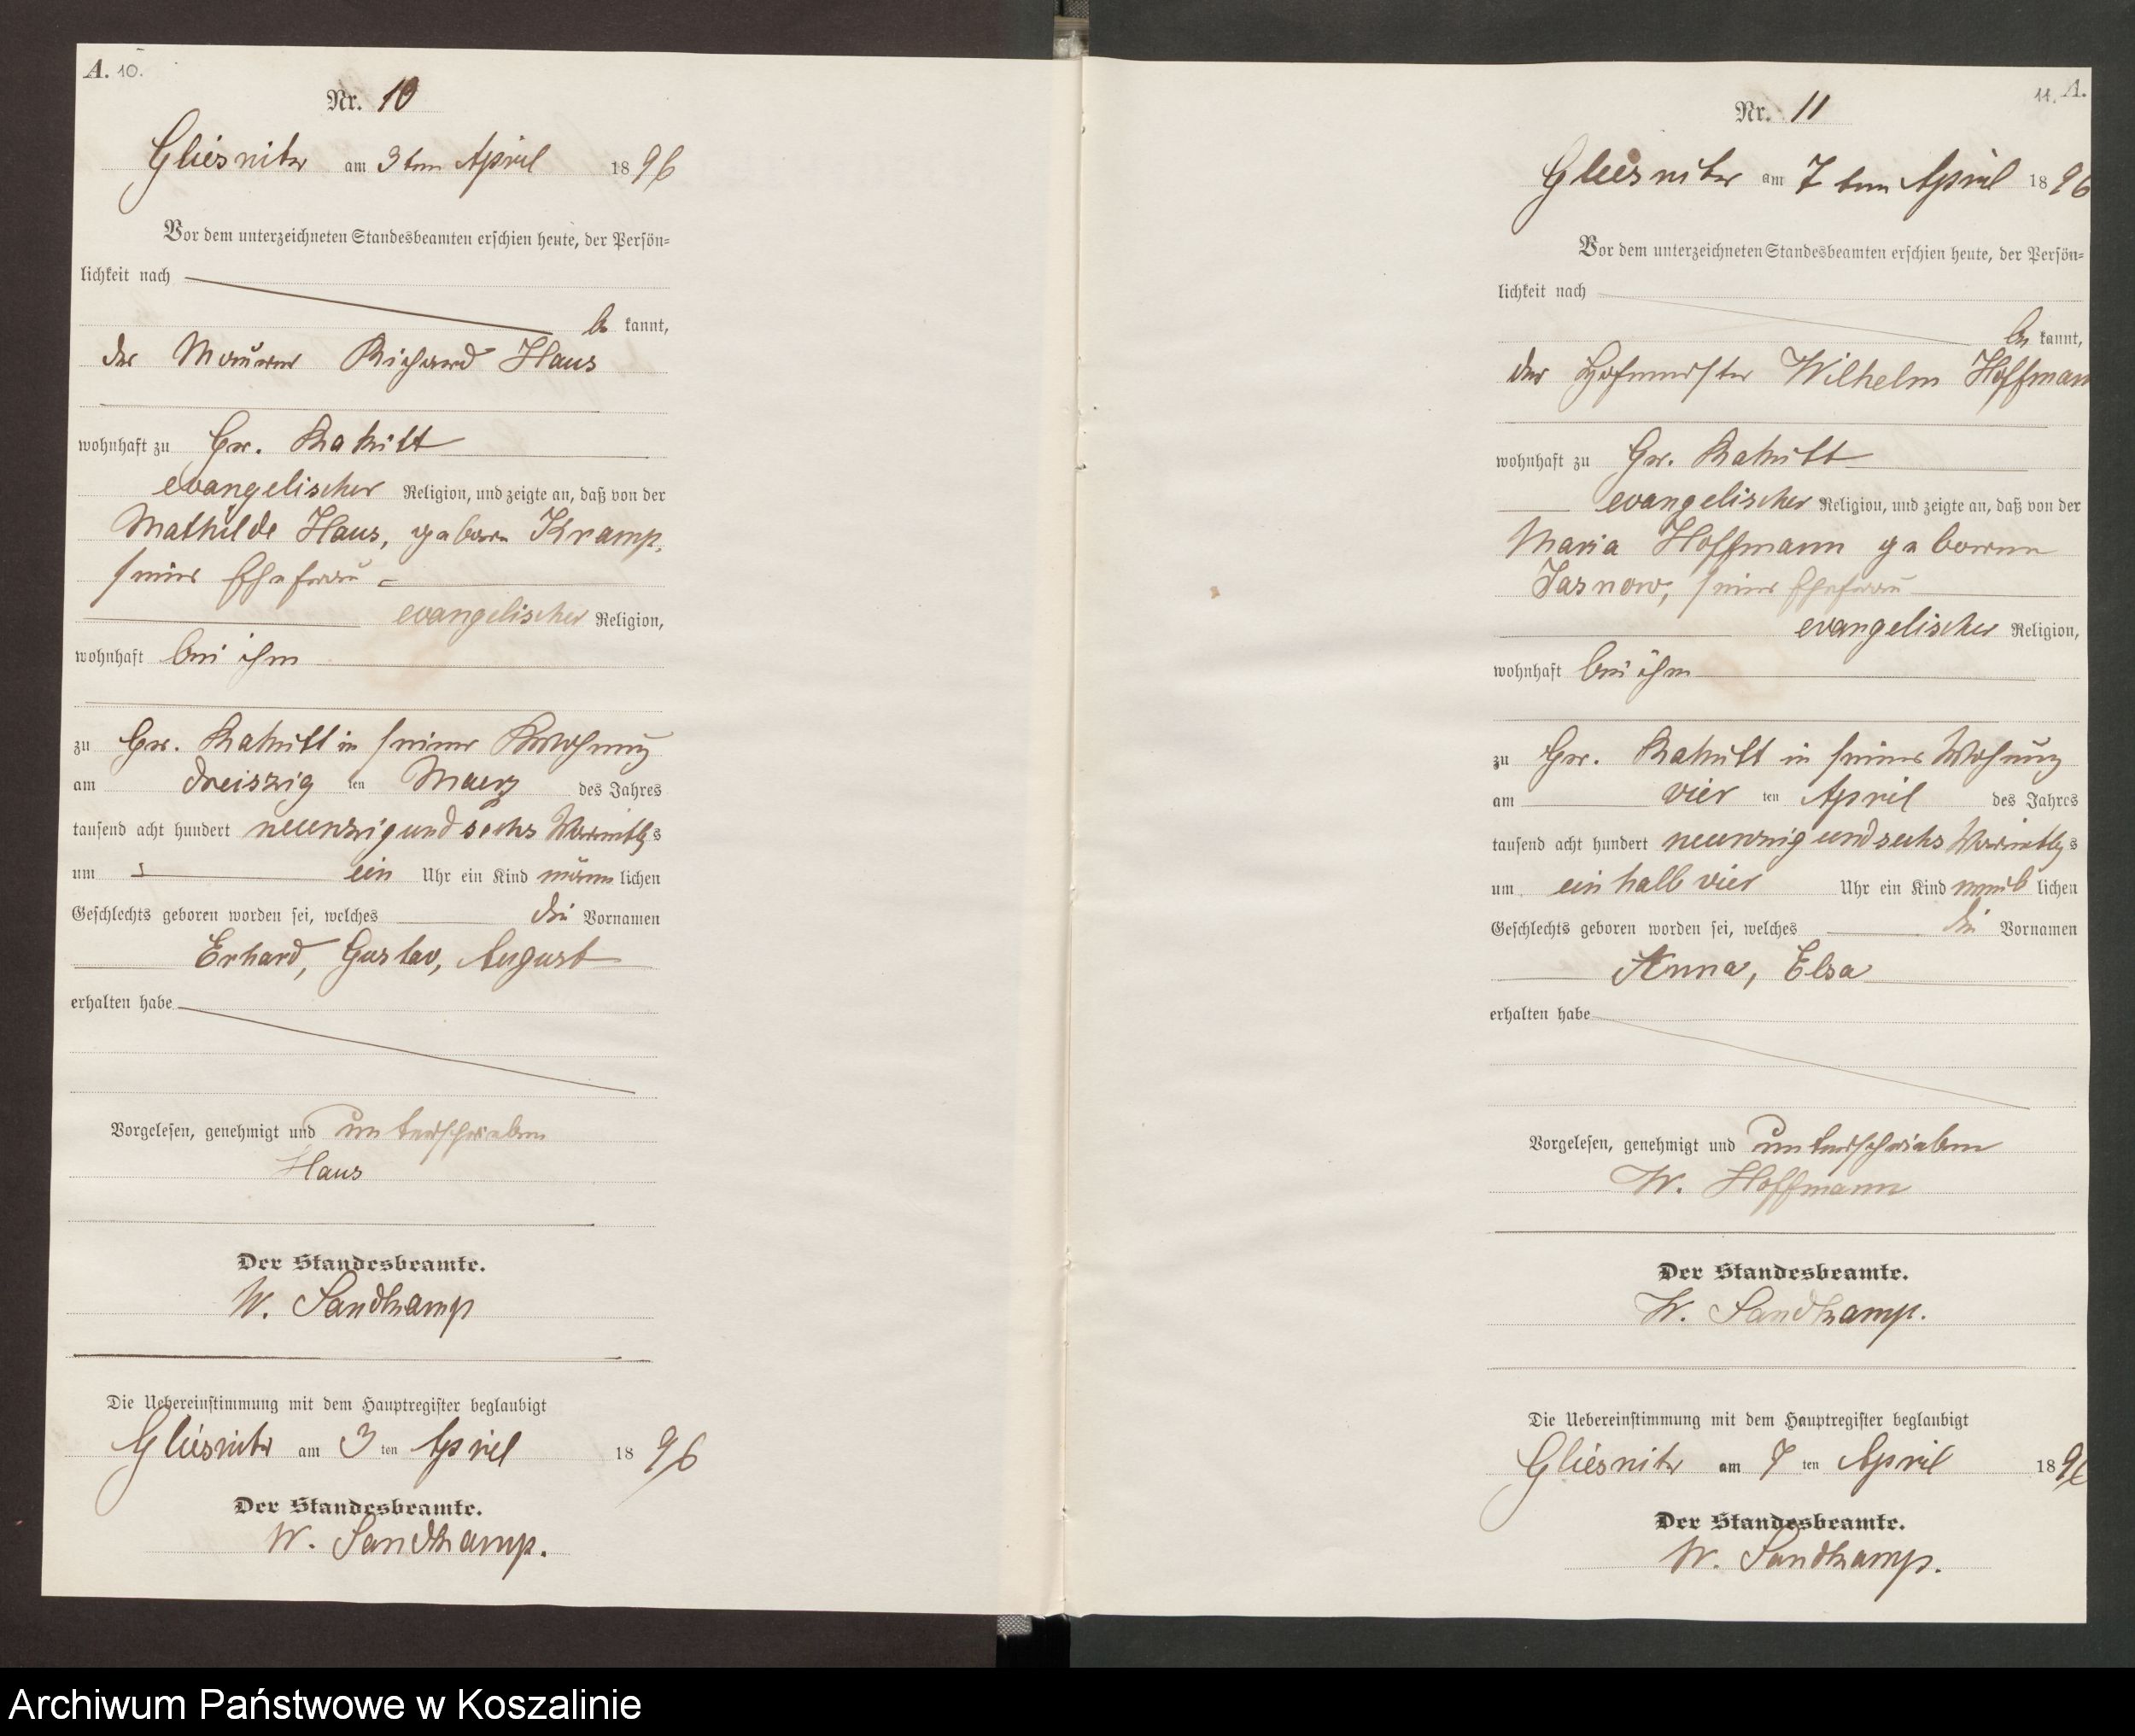 A. 10.
Nr. 10
Gliesnitz am 3 ten April 1896
Vor dem unterzeichneten Standesbeamten erschien heute, der Persön-
lichkeit nach
be kannt,
der Maurer Richard Haus
wohnhaft zu Gr. Rakitt
evangelischer Religion, und zeigte an, daß von der
Mathilde Haus, geborn Kramp,
seiner Ehefrau
evangelischer Religion,
wohnhaft bei ihm
zu Gr. Rakitt in seiner
am dreiszig ten Maerz des Jahres
tausend acht hundert neunzig und sechs Vormittags
um ein Uhr ein Kind männlichen
Geschlechts geboren worden sei, welches die Vornamen
Erhard, Gustav, August
erhalten habe
Vorgelesen, genehmigt und unterschrieben
Haus
Der Standesbeamte.
W. Sandkamp
Die Uebereinstimmung mit dem Hauptregister beglaubigt
Gliesnitz am 3 ten April 1896
Der Standesbeamte.
W. Sandkamp.
11. A.
Nr. 11
Gliesnitz am 7 ten April 1896
Vor dem unterzeichneten Standesbeamten erschien heute, der Persön-
lichkeit nach
be kannt,
der Hofmeister Wilhelm Hoffmann
wohnhaft zu Gr. Rakitt
evangelischer Religion, und zeigte an, daß von der
Maria Hoffmann geborene
Jasnow, seiner Ehefrau
evangelischer Religion,
wohnhaft bei ihm
zu Gr. Rakitt in seiner Wohnung
am vier ten April des Jahres
tausend acht hundert neunzig und sechs Vormittags
um ein halb vier Uhr ein Kind weiblichen
Geschlechts geboren worden sei, welches die Vornamen
Anna, Elsa
erhalten habe
Vorgelesen, genehmigt und unterschrieben
W. Hoffmann
Der Standesbeamte.
W. Sandkamp.
Die Uebereinstimmung mit dem Hauptregister beglaubigt
Gliesnitz am 7 ten April 1896
Der Standesbeamte.
W. Sandkamp.
Archiwum Państwowe w Koszalinie